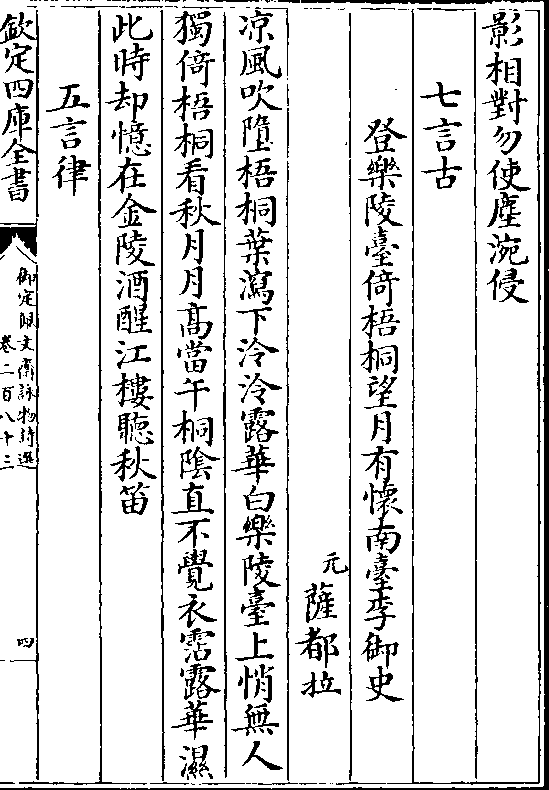 影相對勿使塵涴侵
七言古
登樂陵臺倚梧桐望月有懷南臺李御史
元薩都拉
凉風吹墮梧桐葉瀉下泠泠露華白樂陵臺上悄無人
獨倚梧桐看秋月月髙當午桐陰直不覺衣霑露華濕
此時却憶在金陵酒醒江樓聽秋笛
五言律
欽定四庫全書
御定佩文齋詠物詩選
卷二百八十三
四